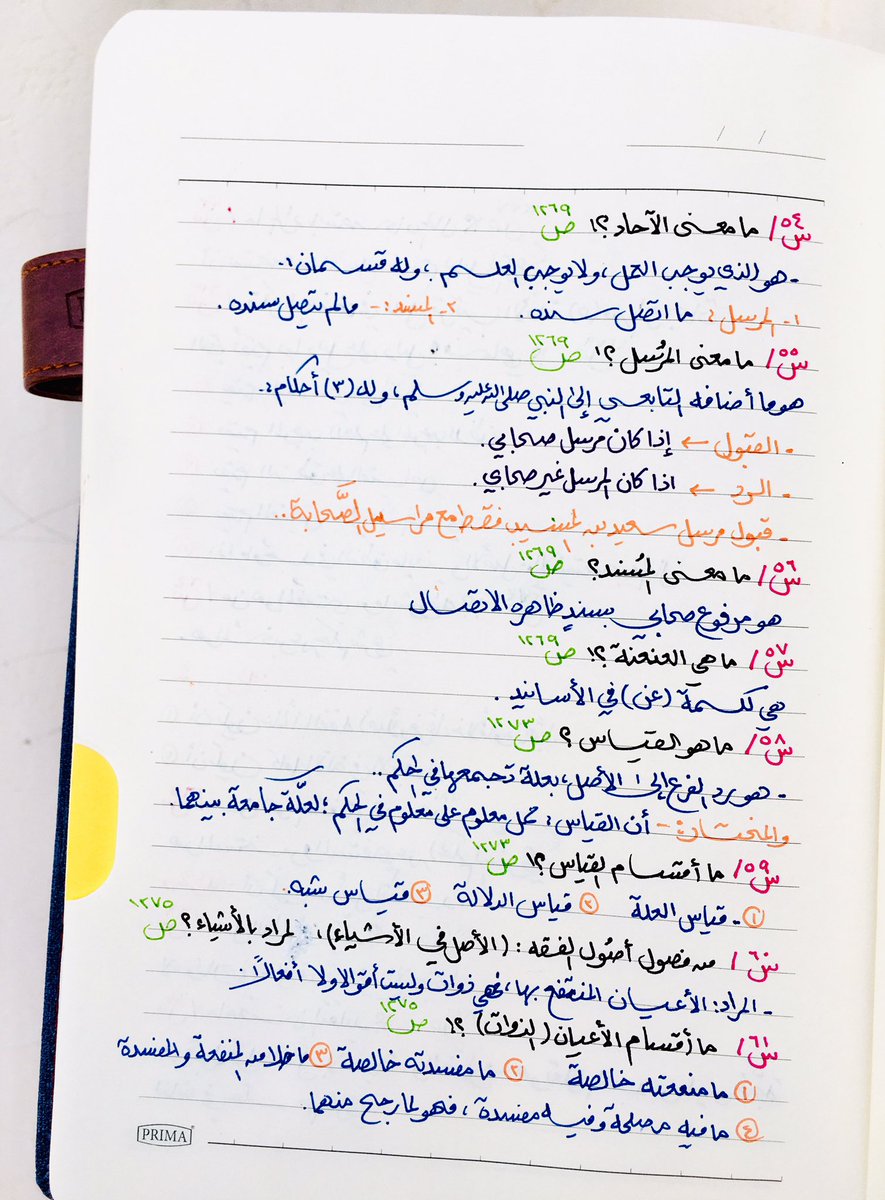 / /
س٥٤/ ما معنى الآحاد؟! ص١٢٦٩
- هو الذي يوجب العمل، ولا يوجب العلم، وله قسمان:-
١- المرسل: ما اتصل سنده. ٢- المسند:- مالم يتصل سنده.
س٥٥/ ما معنى المُرسل؟! ص١٢٦٩
هو ما أضافه التابعي إلى النبي صلى الله عليه وسلم، وله (٣) أحكام:
- القبول ← إذا كان مرسل صحابي.
- الرد ← اذا كان المرسل غير صحابي.
- قبول مرسل سعيد بن المسيب فقط مع مراسيل الصَّحابة..
س٥٦/ ما معنى المُسند؟ ص١٢٦٩
هو مرفوع صحابي بسندٍ ظاهره الاتصال
س٥٧/ ما هي العنعنة؟! ص١٢٦٩
هي كلمة (عن) في الأسانيد.
س٥٨/ ما هو القياس؟ ص١٢٧٣
- هو رد الفرع إلى الأصل، بعلة تجمعهما في الحكم..
والمختار:- أن القياس: حمل معلوم على معلوم في الحكم؛ لعلّة جامعة بينهما.
س٥٩/ ما أقسام القياس؟! ص١٢٧٣
①- قياس العلة ② قياس الدلالة ③ قياس شبه.
س٦٠/ من فصول أصُول الفقه: (الأصل في الأشياء)، المراد بالأشياء؟ ص١٢٧٥
- المراد: الأعيان المنتفع بها، فهي ذوات وليست أقوالا ولا أفعالاً.
س٦١/ ما أقسام الأعيان (الذوات)؟! ص١٢٧٥
① ما منفعته خالصة ② ما مفسدته خالصة ③ ما خلا من المنفعة والمفسدة
④ ما فيه مصلحة وفيه مفسدة، فهو لما رجح منهما.
PRIMA